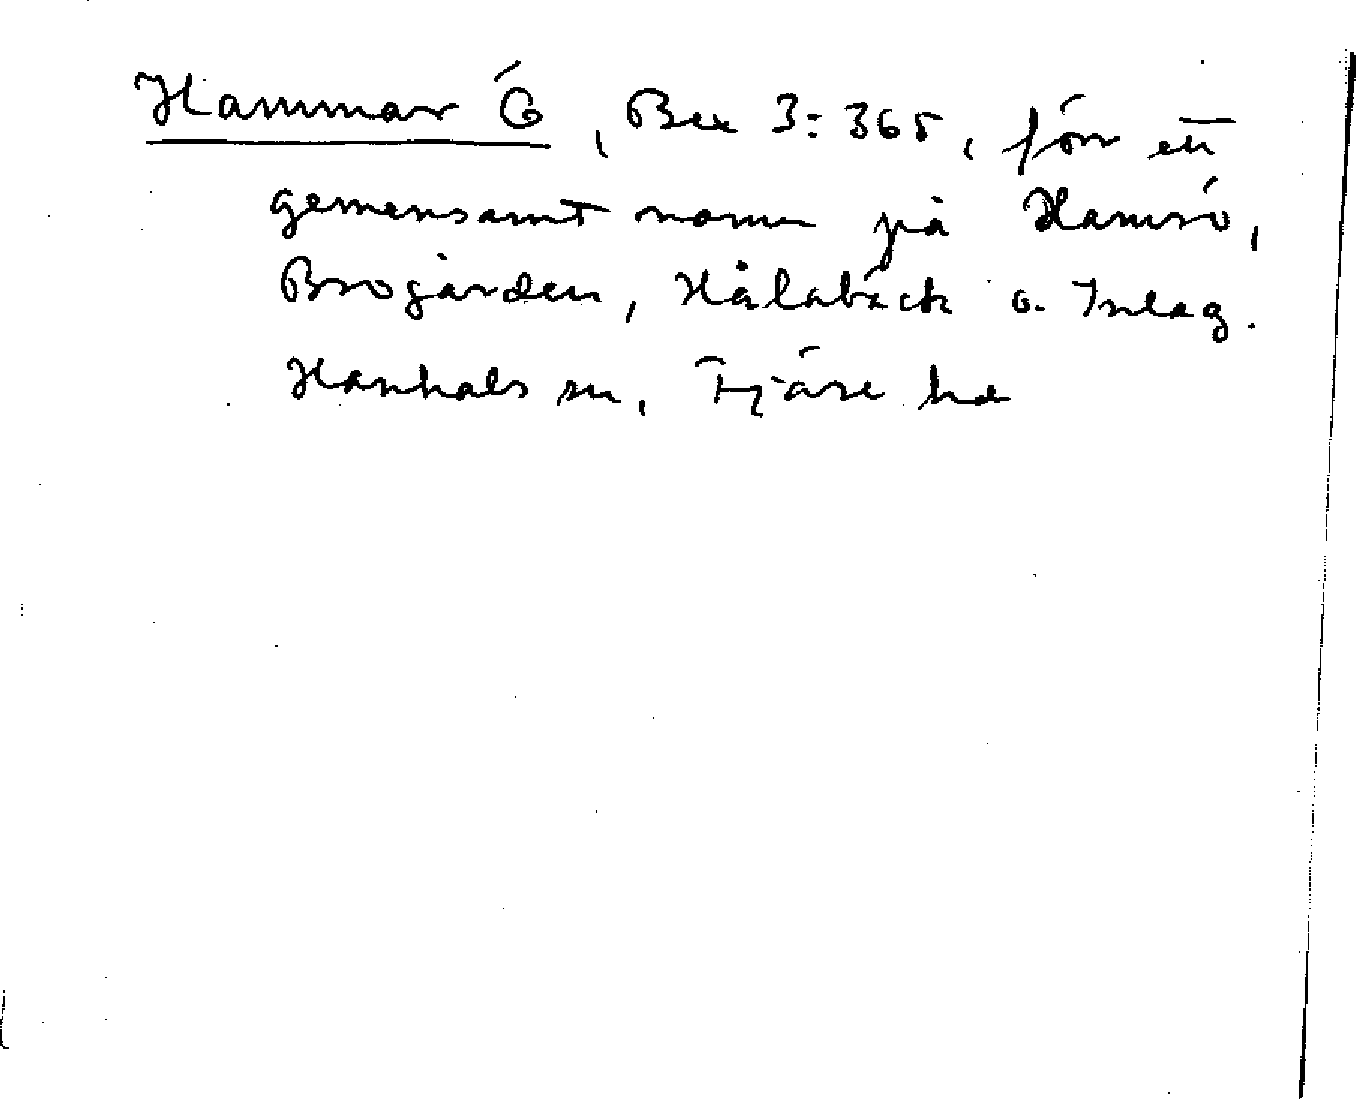 Hammar Ö, Bex 3:365, förr ett
gemensamt namn på Hamrö,
Brogården, Hålabäck o. Inlag.
Hanhals sn, Fjäre hd